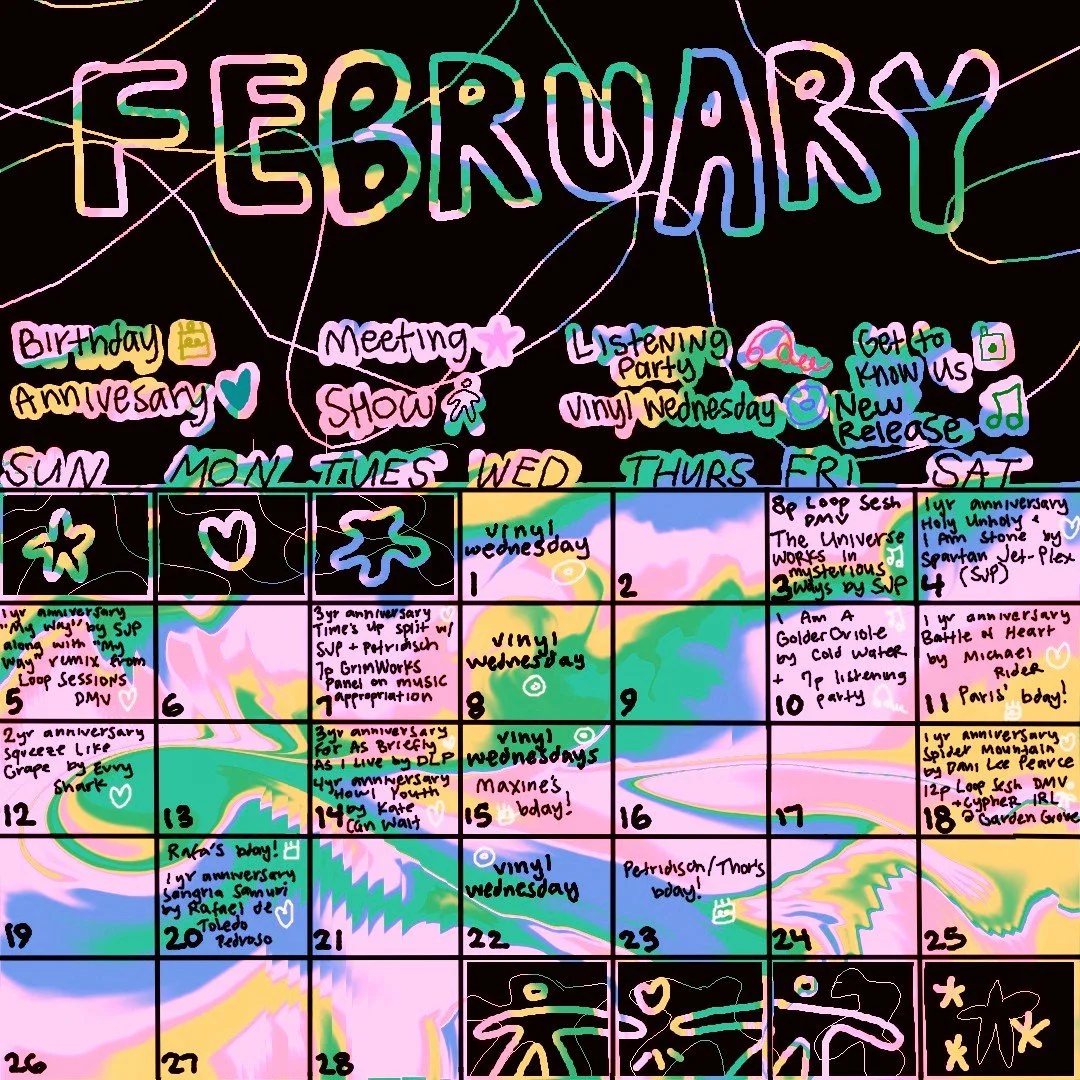 FEBRUARY
Birthday
Annivesary
Meeting
SHOW
Listening
Party
Vinyl Wednesday
Get to
Know Us
New
Release
SUN MON TUES WED THURS FRI SAT
vinyl
wednesday
1
2
8p Loop Sesh
DMV
The Universe
works in
mysterious
ways by SJP
3
1yr anniversary
Holy Unholy +
I Am Stone by
Spartan Jet-Plex
(SJP)
4
1yr anniversary
"My Way" by SJP
along with "My
Way" remix from
Loop Sessions
DMV
5
6
3yr anniversary
Time's Up split w/
SJP + Petridisch
7p GrimWorks
Panel on music
appropriation
7
vinyl
wednesday
8
9
I Am A
Golder Oriole
by Cold Water
+ 7p listening
party
10
1 yr anniversary
Battle of Heart
by Michael
Rider
Paris' bday!
11
2yr anniversary
Squeeze Like
Grape by Evvy
Shark
12
13
3yr anniversary
for As Briefly
As I Live by DLP
4yr anniversary
Howl Youth
by Kate
Can Wait
14
vinyl
wednesdays
Maxine's
bday!
15
16
17
1yr anniversary
Spider Mountain
by Dani Lee Pearce
12p Loop Sesh DMV
+ Cypher IRL
@ Garden Grove
18
19
Rafa's bday!
1yr anniversary
Sangria Samuri
by Rafael de
Toledo
Pedroso
20
21
vinyl
wednesday
22
Petridisch/Thor's
bday!
23
24
25
26
27
28